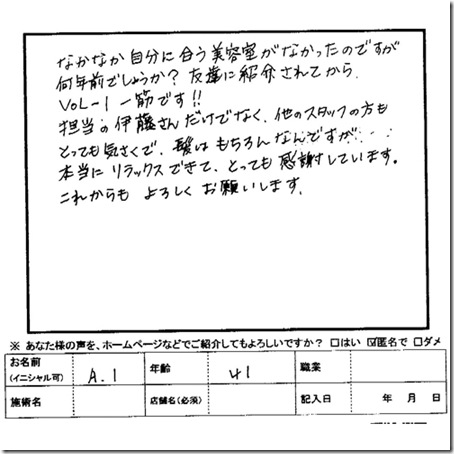 なかなか自分に合う美容室がなかったのですが
何年前でしょうか？友達に紹介されてから、
VOL-1 一筋です!!
担当の伊藤さんだけでなく、他のスタッフの方も
とっても気さくで、髪はもちろんなんですが...
本当にリラックスできて、とっても感謝しています。
これからもよろしくお願いします。
※ あなた様の声を、ホームページなどでご紹介してもよろしいですか？ □はい ☑匿名で □ダメ
お名前(イニシャル可) A.I 年齢 41 職業
施術名 店舗名(必須) 記入日 年 月 日